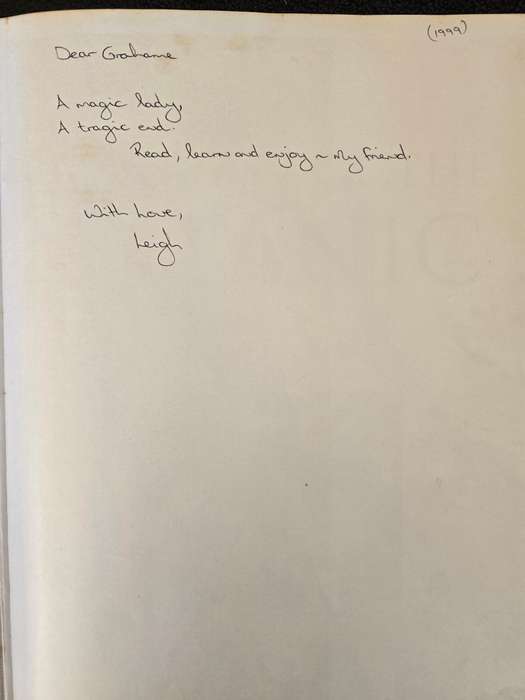 (1999)
Dear Grahame
A magic lady,
A tragic end.
Read, learn and enjoy ~ My friend.
With Love,
Leigh